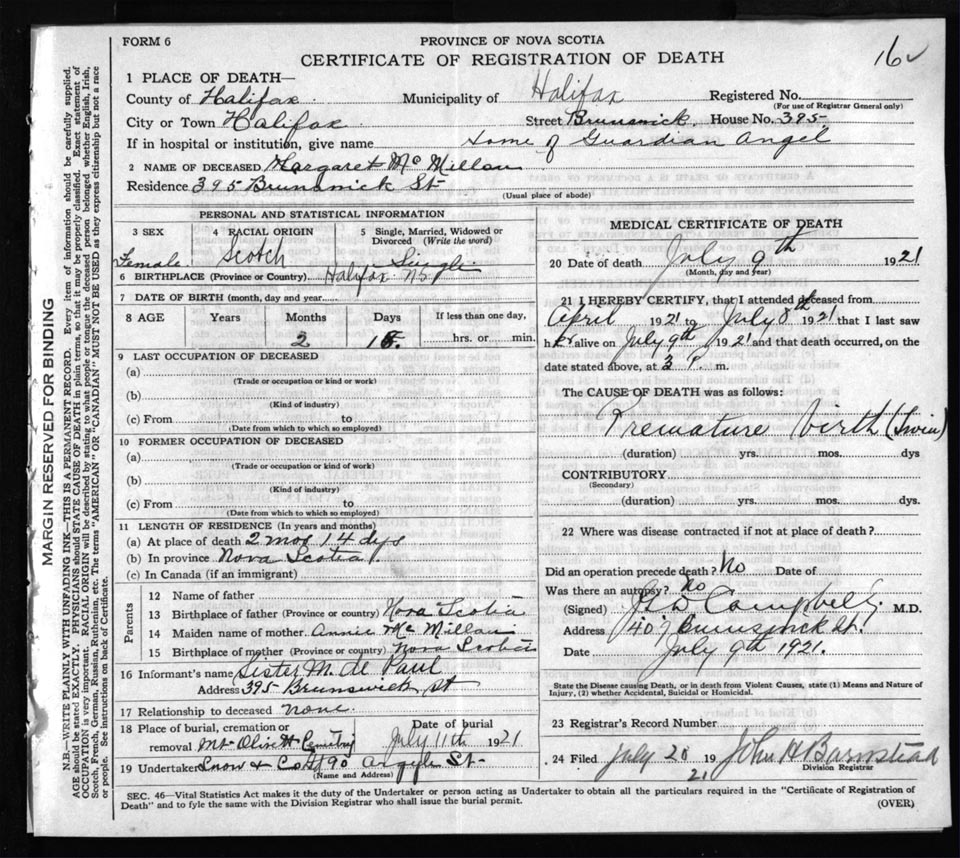 FORM 6
PROVINCE OF NOVA SCOTIA
CERTIFICATE OF REGISTRATION OF DEATH
16
1 PLACE OF DEATH—
County of Halifax Municipality of Halifax Registered No.
(For use of Registrar General only)
City or Town Halifax Street Brunswick House No. 395
If in hospital or institution, give name Home of Guardian Angel
2 NAME OF DECEASED Margaret Mc Millan
Residence 395 Brunswick St
(Usual place of abode)
PERSONAL AND STATISTICAL INFORMATION
3 SEX 4 RACIAL ORIGIN 5 Single, Married, Widowed or Divorced (Write the word)
Female Scotch Single
6 BIRTHPLACE (Province or Country) Halifax NS
7 DATE OF BIRTH (month, day and year)
8 AGE Years Months Days If less than one day,
2 hrs. or min.
9 LAST OCCUPATION OF DECEASED
(a)
(Trade or occupation or kind or work)
(b)
(Kind of industry)
(c) From to
(Date from which to which so employed)
10 FORMER OCCUPATION OF DECEASED
(a)
(Trade or occupation or kind of work)
(b)
(Kind of industry)
(c) From to
(Date from which to which so employed)
11 LENGTH OF RESIDENCE (In years and months)
(a) At place of death 2 mos 14 dys
(b) In province Nova Scotia
(c) In Canada (if an immigrant)
Parents
12 Name of father
13 Birthplace of father (Province or country) Nova Scotia
14 Maiden name of mother Annie Mc Millan
15 Birthplace of mother (Province or country) Nova Scotia
16 Informant's name Sister M. de Paul
Address 395 Brunswick St
17 Relationship to deceased none
18 Place of burial, cremation or Date of burial
removal Mt Olivett Cemetery July 11th 1921
19 Undertaker Snow & Co 90 Argyle St
(Name and Address)
MEDICAL CERTIFICATE OF DEATH
20 Date of death July 9th 1921
(Month, day and year)
21 I HEREBY CERTIFY, that I attended deceased from
April 1921 to July 8th 1921 that I last saw
her alive on July 9th 1921 and that death occurred, on the
date stated above, at 3 P. m.
The CAUSE OF DEATH was as follows:
Premature birth (Twin)
(duration) yrs. mos. dys
CONTRIBUTORY
(Secondary)
(duration) yrs. mos. dys.
22 Where was disease contracted if not at place of death?
Did an operation precede death? No Date of
Was there an autopsy? No
(Signed) Campbell M.D.
Address 407 Brunswick St.
Date July 9th 1921.
State the Disease causing Death, or in death from Violent Causes, state (1) Means and Nature of
Injury, (2) whether Accidental, Suicidal or Homicidal.
23 Registrar's Record Number
24 Filed July 20 1921 John H Barnstead
Division Registrar
SEC. 46—Vital Statistics Act makes it the duty of the Undertaker or person acting as Undertaker to obtain all the particulars required in the "Certificate of Registration of
Death" and to fyle the same with the Division Registrar who shall issue the burial permit.
(OVER)
MARGIN RESERVED FOR BINDING
N.B.—WRITE PLAINLY WITH UNFADING INK—THIS IS A PERMANENT RECORD. Every item of information should be carefully supplied.
AGE should be stated EXACTLY. PHYSICIANS should STATE CAUSE OF DEATH in plain terms, so that it may be properly classified. Exact statement of
OCCUPATION is very important. RACIAL ORIGIN will be described by stating to what people or tongue the deceased person belonged whether English, Irish,
Scotch, French, German, Russian, Ruthenian, etc. The terms "AMERICAN" OR "CANADIAN" MUST NOT BE USED as they express citizenship but not a race
or people. See instructions on back of Certificate.